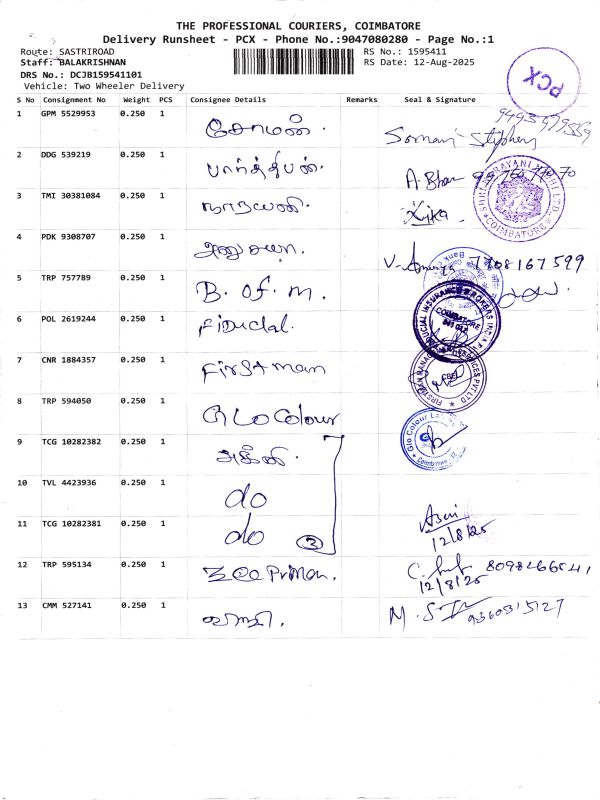 THE PROFESSIONAL COURIERS, COIMBATORE
Delivery Runsheet - PCX - Phone No.:9047080280 - Page No.:1
Route: SASTRIROAD
RS No.: 1595411
Staff: BALAKRISHNAN
RS Date: 12-Aug-2025
DRS No.: DCJB159541101
Vehicle: Two Wheeler Delivery
PCX
S No Consignment No Weight PCS Consignee Details Remarks Seal & Signature
1 GPM 5529953 0.250 1 சோமன்.
2 DDG 539219 0.250 1 பார்த்தீபன்.
3 TMI 30381084 0.250 1
4 PDK 9308707 0.250 1 7708167599
5 TRP 757789 0.250 1 B. of. m.
6 POL 2619244 0.250 1 Fiducial.
7 CNR 1884357 0.250 1 First man
8 TRP 594050 0.250 1 Glo Colour
9 TCG 10282382 0.250 1 அக்னி.
10 TVL 4423936 0.250 1 do
11 TCG 10282381 0.250 1 do 3 12/8/25
12 TRP 595134 0.250 1 12/8/25
13 CMM 527141 0.250 1 9360315127